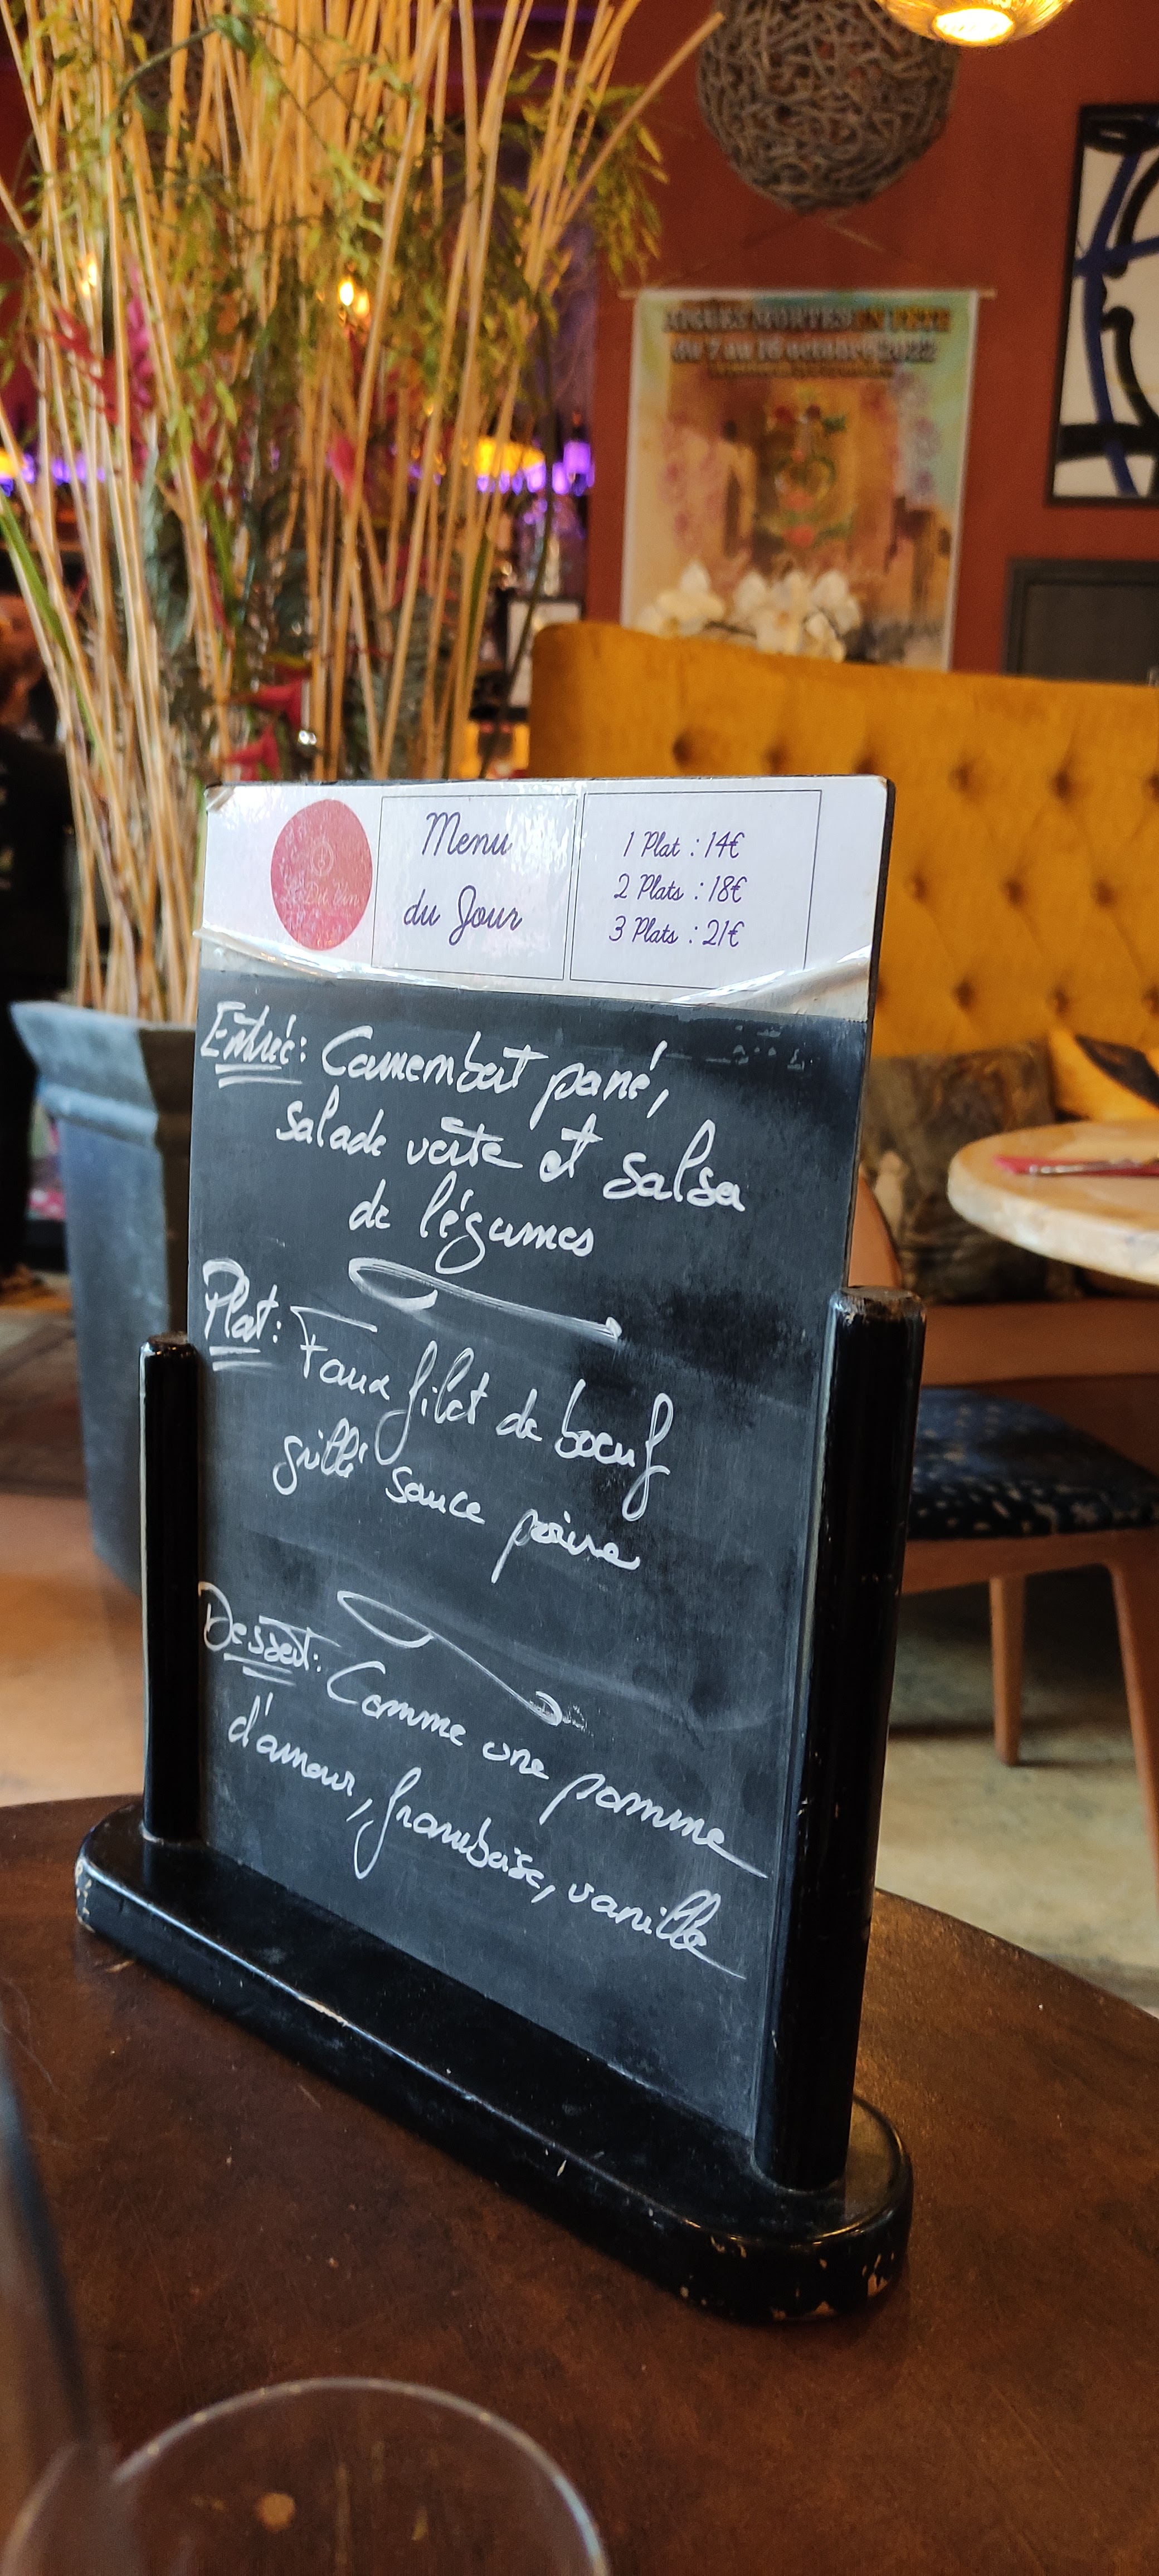 AIGUES MORTES EN FÊTE
du 7 au 16 octobre 2022
Menu
du Jour
1 Plat : 14€
2 Plats : 18€
3 Plats : 21€
Entrée: Camembert pané,
salade verte et salsa
de légumes
Plat: Faux filet de boeuf
grillé sauce poivre
Dessert: Comme une pomme
d'amour, framboise, vanille